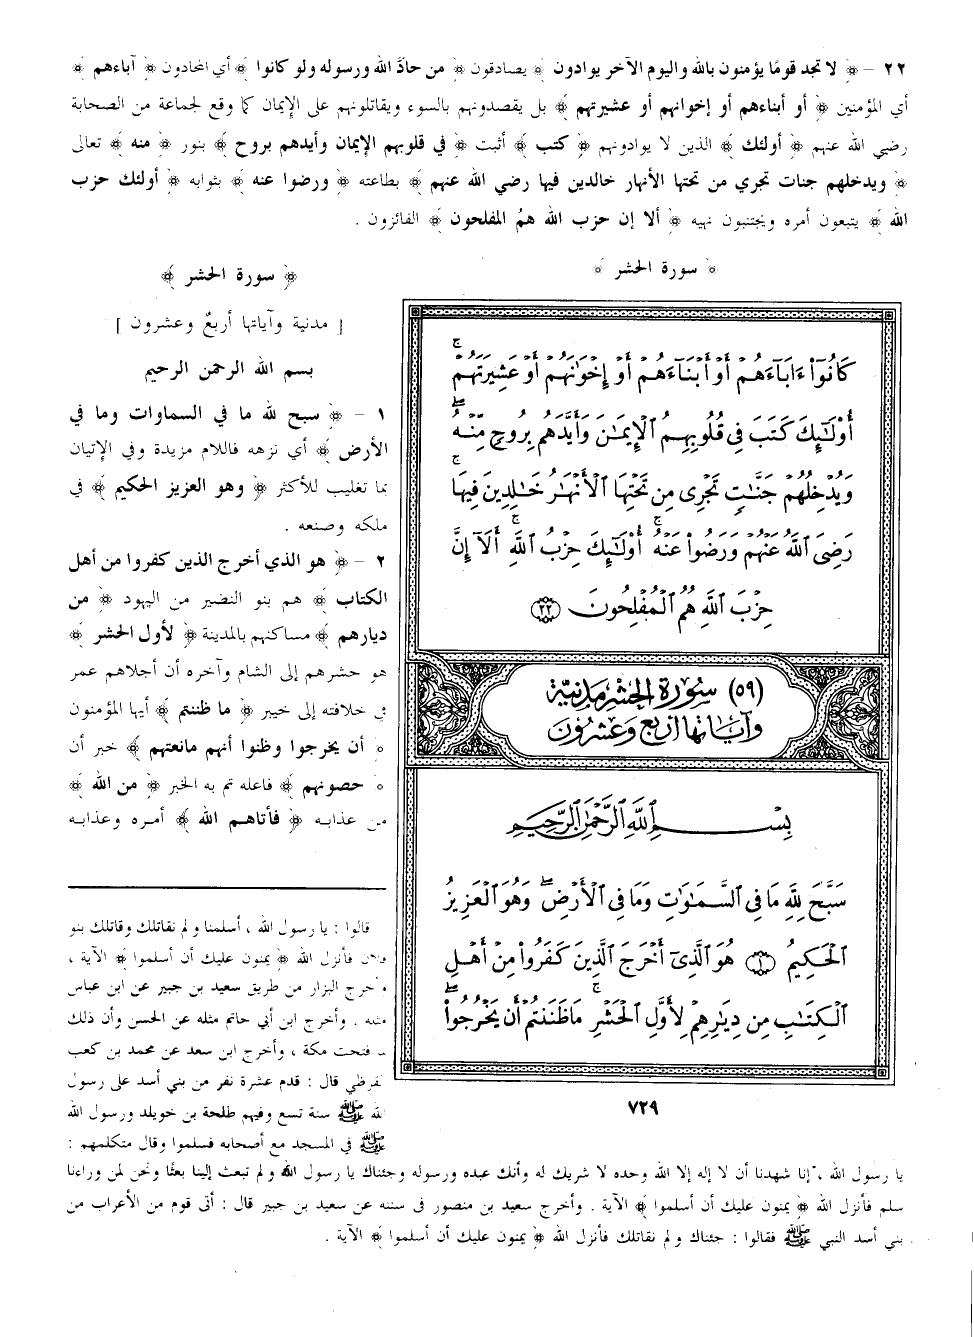 ٢٢ - ﴿ لا تجد قومًا يؤمنون بالله واليوم الآخر يوادون ﴾ يصادقون ﴿ من حادّ الله ورسوله ولو كانوا ﴾ أي المحادون ﴿ آباءهم ﴾
أي المؤمنين ﴿ أو أبناءهم أو إخوانهم أو عشيرتهم ﴾ بل يقصدونهم بالسوء ويقاتلونهم على الإيمان كما وقع لجماعة من الصحابة
رضي الله عنهم ﴿ أولئك ﴾ الذين لا يوادونهم ﴿ كتب ﴾ أثبت ﴿ في قلوبهم الإيمان وأيدهم بروح ﴾ بنور ﴿ منه ﴾ تعالى
﴿ ويدخلهم جنات تجري من تحتها الأنهار خالدين فيها رضي الله عنهم ﴾ بطاعته ﴿ ورضوا عنه ﴾ بثوابه ﴿ أولئك حزب
الله ﴾ يتبعون أمره ويجتنبون نهيه ﴿ ألا إن حزب الله همُ المفلحون ﴾ الفائزون .
﴿ سورة الحشر ﴾
﴿ سورة الحشر ﴾
[ مدنية وآياتها أربعٌ وعشرون ]
بسم الله الرحمن الرحيم
١ - ﴿ سبح لله ما في السماوات وما في
الأرض ﴾ أي نزهه فاللام مزيدة وفي الإتيان
بما تغليب للأكثر ﴿ وهو العزيز الحكيم ﴾ في
ملكه وصنعه .
٢ - ﴿ هو الذي أخرج الذين كفروا من أهل
الكتاب ﴾ هم بنو النضير من اليهود ﴿ من
ديارهم ﴾ مساكنهم بالمدينة ﴿ لأول الحشر ﴾
هو حشرهم إلى الشام وآخره أن أجلاهم عمر
في خلافته إلى خيبر ﴿ ما ظننتم ﴾ أيها المؤمنون
﴿ أن يخرجوا وظنوا أنهم مانعتهم ﴾ خبر أن
﴿ حصونهم ﴾ فاعله تم به الخبر ﴿ من الله ﴾
من عذابه ﴿ فأتاهم الله ﴾ أمره وعذابه
كَانُوٓا۟ ءَابَآءَهُمْ أَوْ أَبْنَآءَهُمْ أَوْ إِخْوَٰنَهُمْ أَوْ عَشِيرَتَهُمْ ۚ
أُو۟لَٰٓئِكَ كَتَبَ فِى قُلُوبِهِمُ ٱلْإِيمَٰنَ وَأَيَّدَهُم بِرُوحٍ مِّنْهُ ۖ
وَيُدْخِلُهُمْ جَنَّٰتٍ تَجْرِى مِن تَحْتِهَا ٱلْأَنْهَٰرُ خَٰلِدِينَ فِيهَا ۚ
رَضِىَ ٱللَّهُ عَنْهُمْ وَرَضُوا۟ عَنْهُ ۚ أُو۟لَٰٓئِكَ حِزْبُ ٱللَّهِ ۚ أَلَآ إِنَّ
حِزْبَ ٱللَّهِ هُمُ ٱلْمُفْلِحُونَ ٢٢
(٥٩) سورة الحشر مدنية
وآياتها أربع وعشرون
بِسْمِ ٱللَّهِ ٱلرَّحْمَٰنِ ٱلرَّحِيمِ
سَبَّحَ لِلَّهِ مَا فِى ٱلسَّمَٰوَٰتِ وَمَا فِى ٱلْأَرْضِ ۖ وَهُوَ ٱلْعَزِيزُ
ٱلْحَكِيمُ ١ هُوَ ٱلَّذِىٓ أَخْرَجَ ٱلَّذِينَ كَفَرُوا۟ مِنْ أَهْلِ
ٱلْكِتَٰبِ مِن دِيَٰرِهِمْ لِأَوَّلِ ٱلْحَشْرِ ۚ مَا ظَنَنتُمْ أَن يَخْرُجُوا۟ ۖ
٧٢٩
قالوا : يا رسول الله ، أسلمنا ولم نقاتلك وقاتلك بنو
فلان فأنزل الله ﴿ يمنون عليك أن أسلموا ﴾ الآية ،
وأخرج البزار من طريق سعيد بن جبير عن ابن عباس
مثله . وأخرج ابن أبي حاتم مثله عن الحسن وأن ذلك
فتحت مكة ، وأخرج ابن سعد عن محمد بن كعب
القرظي قال : قدم عشرة نفر من بني أسد على رسول
الله ﷺ سنة تسع وفيهم طلحة بن خويلد ورسول الله
ﷺ في المسجد مع أصحابه فسلموا وقال متكلمهم :
يا رسول الله ، إنا شهدنا أن لا إله إلا الله وحده لا شريك له وأنك عبده ورسوله وجئناك يا رسول الله ولم تبعث إلينا بعثًا ونحن لمن وراءنا
سلم فأنزل الله ﴿ يمنون عليك أن أسلموا ﴾ الآية . وأخرج سعيد بن منصور في سننه عن سعيد بن جبير قال : أتى قوم من الأعراب من
بني أسد النبي ﷺ فقالوا : جئناك ولم نقاتلك فأنزل الله ﴿ يمنون عليك أن أسلموا ﴾ الآية .